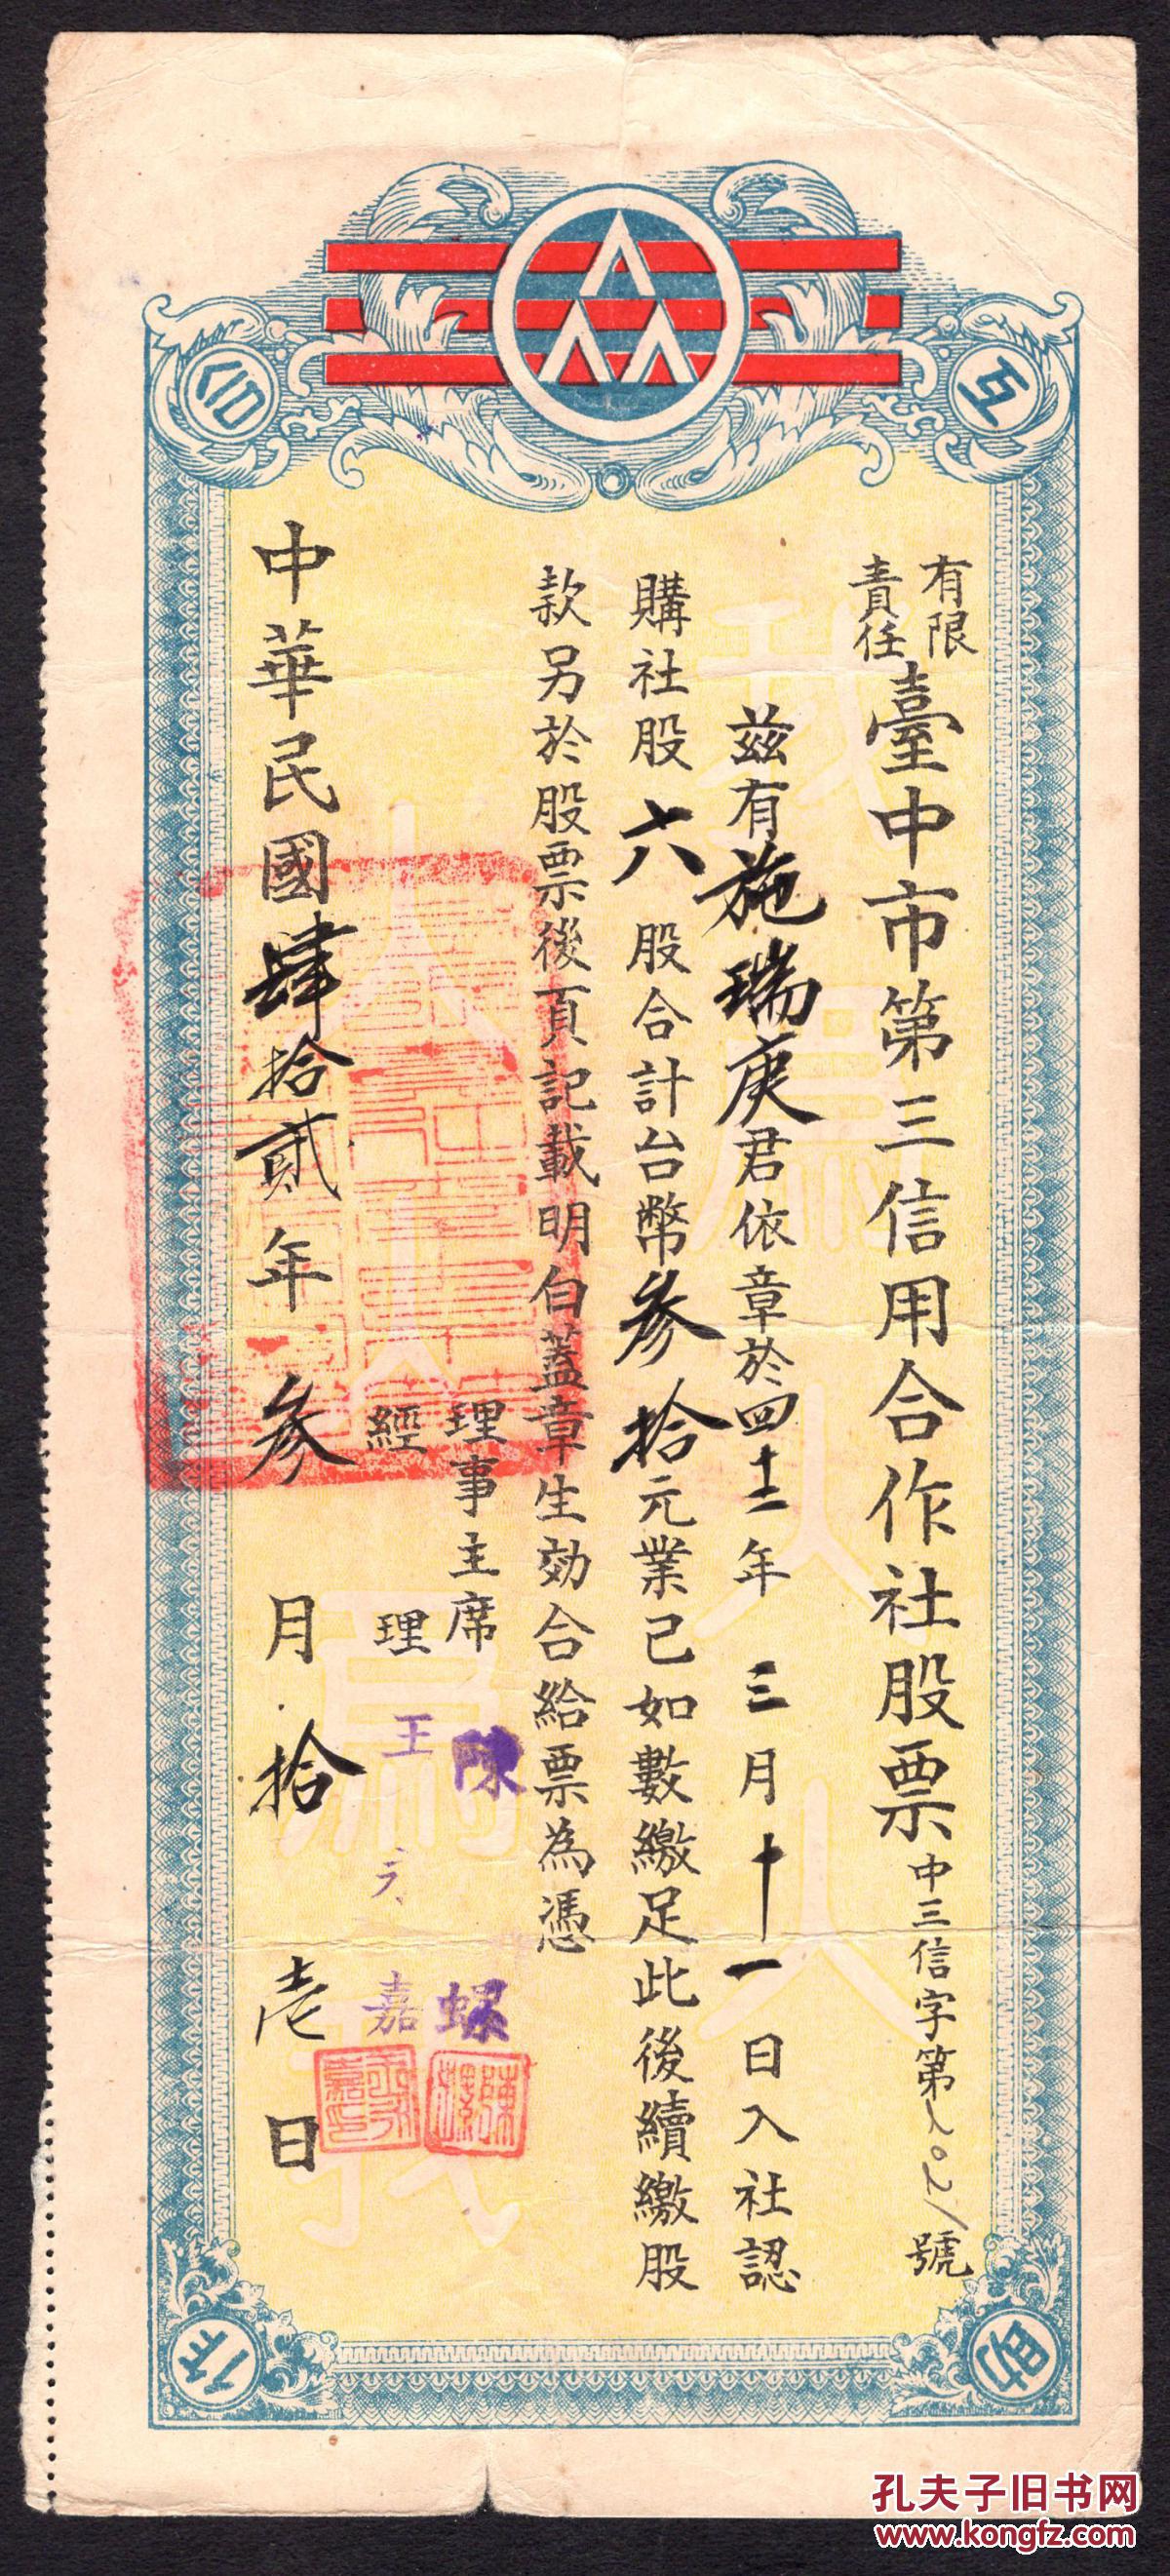 互助
合作
有限責任臺中市第三信用合作社股票中三信字第 號
茲有施瑞庚君依章於四十二年三月十一日入社認
購社股六股合計台幣參拾元業已如數繳足此後續繳股
款另於股票後頁記載明白蓋章生効合給票為憑
理事主席 陳螺
經理 王 嘉
中華民國肆拾貳年參月拾壱日
我為人人
人人為我
孔夫子旧书网
www.kongfz.com